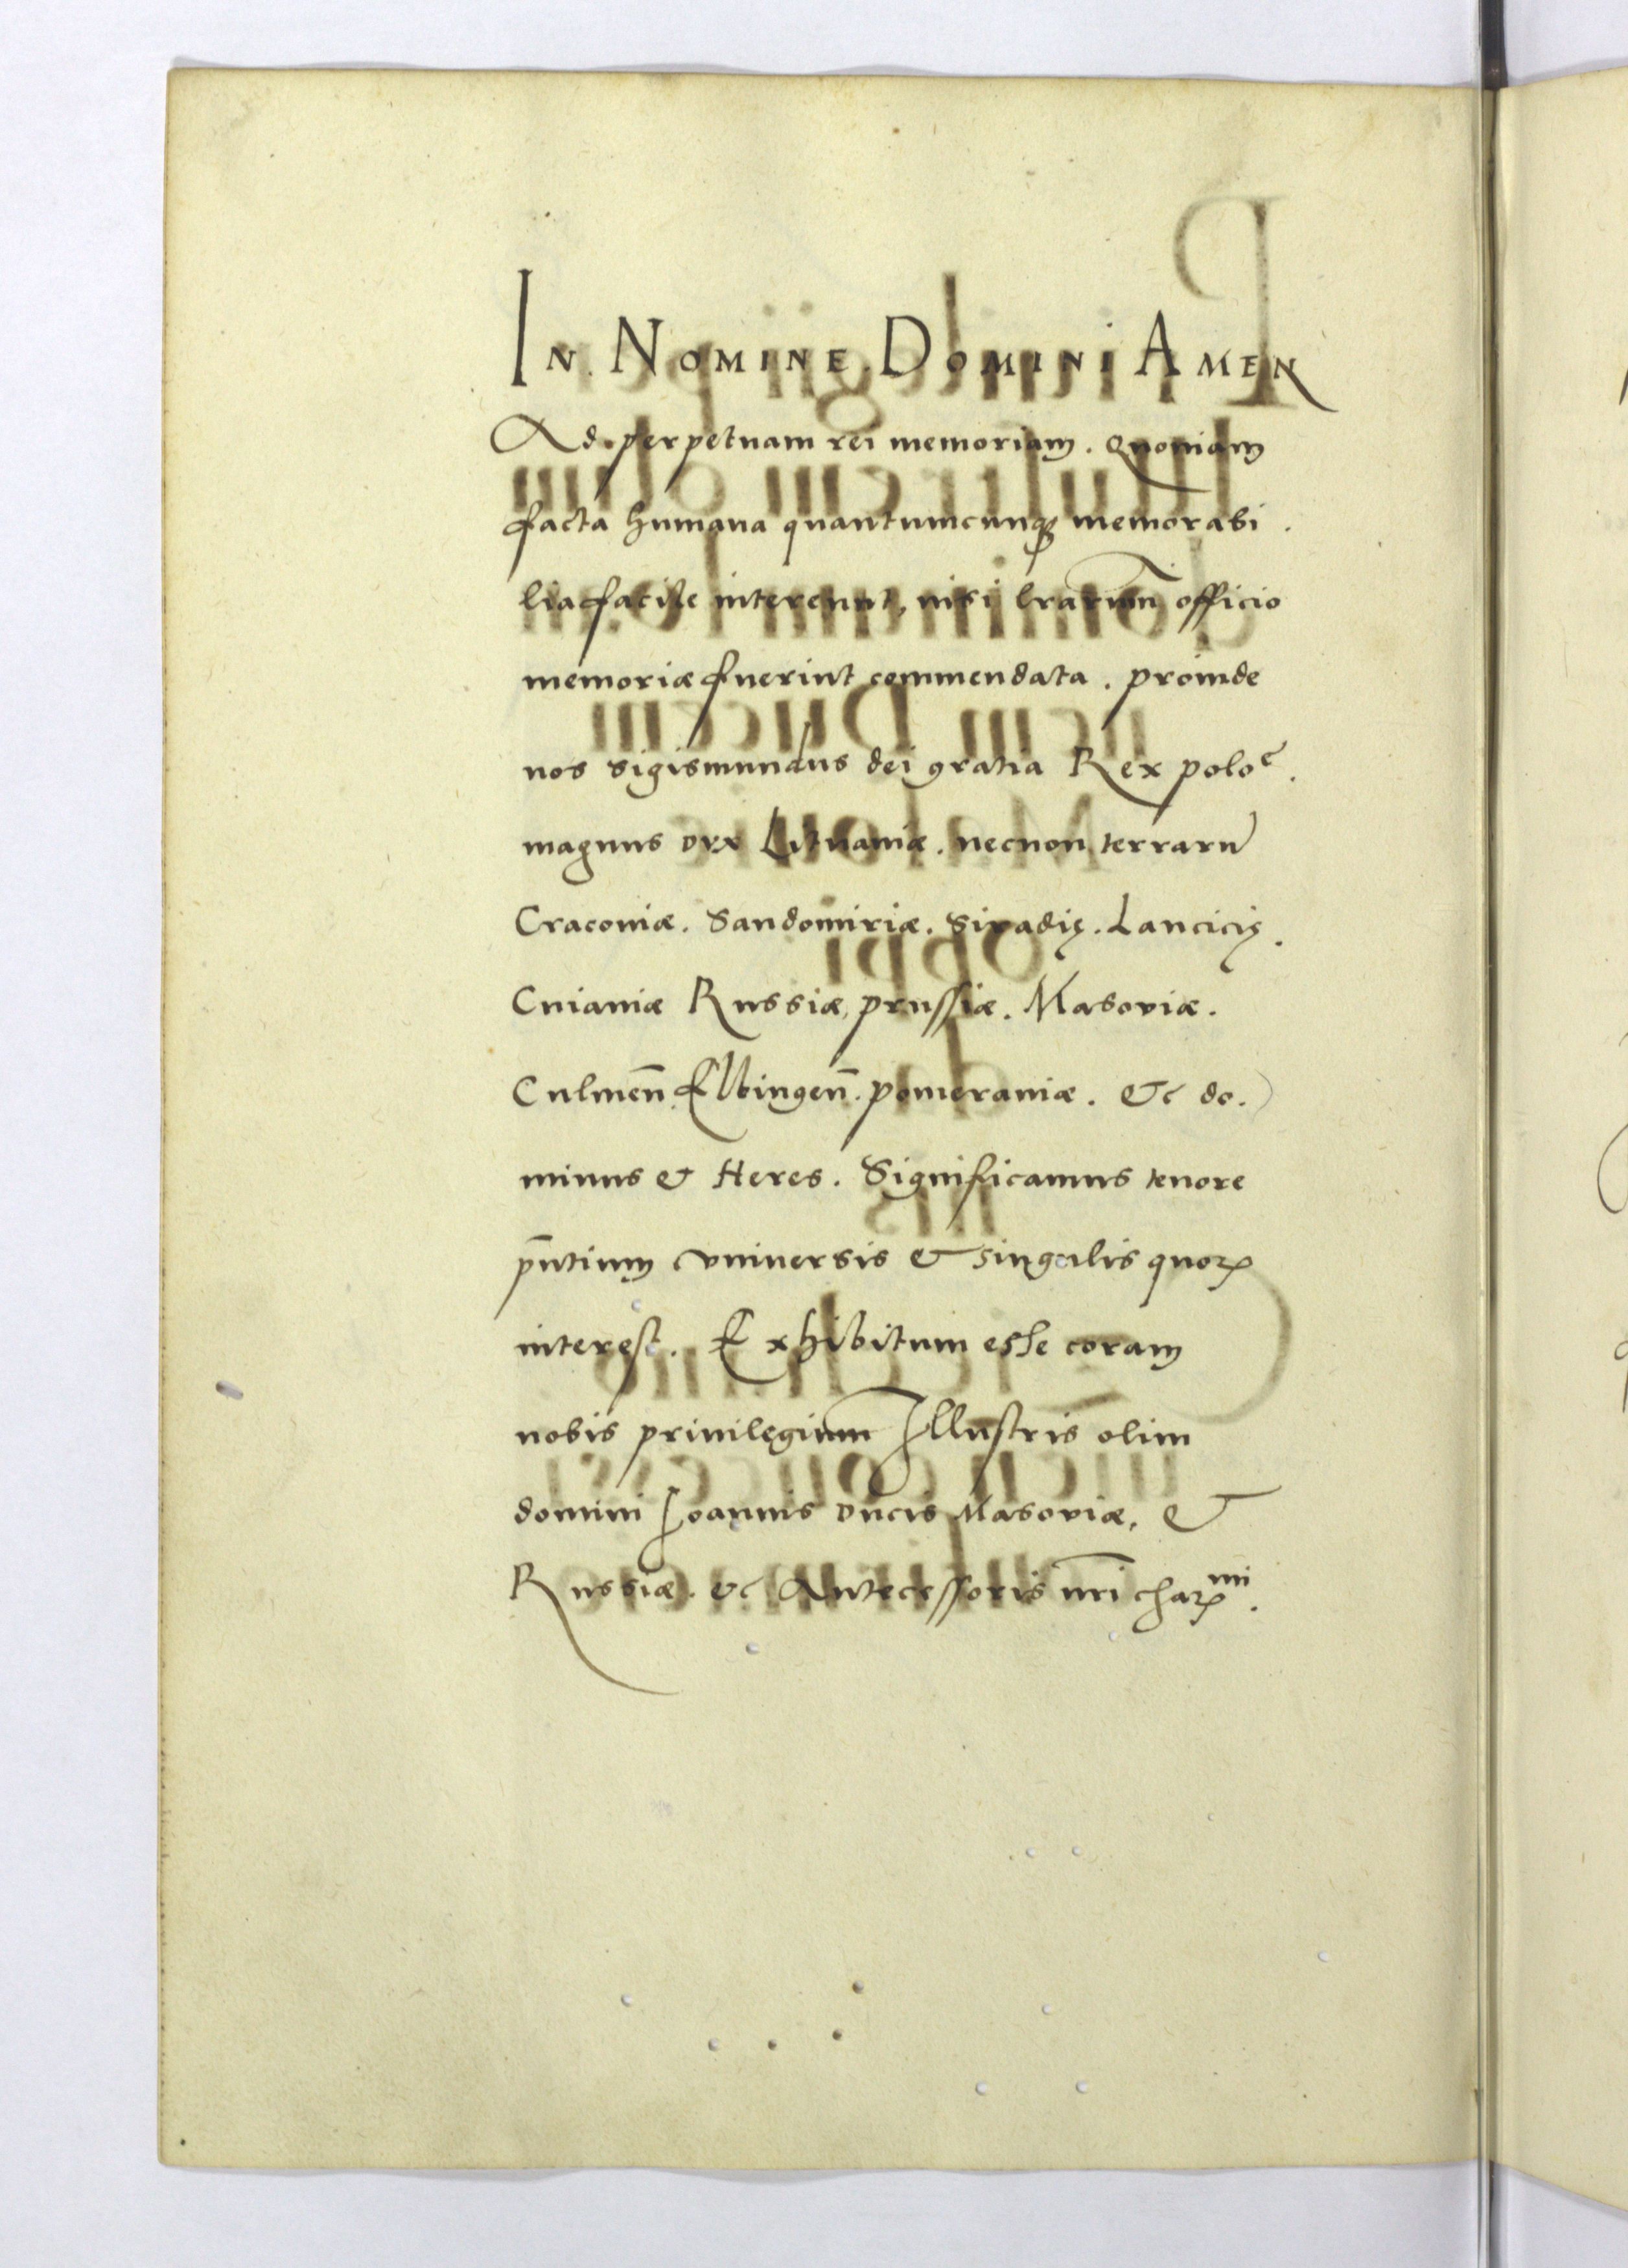 In. Nomine. Domini Amen
Ad perpetuam rei memoriam. Quoniam
facta humana quantumcunqȝ memorabi.
lia facile intereunt, nisi lrarum̄ officio
memoriæ fuerint commendata. proinde
nos sigismundus dei gratia Rex poloᵉ.
magnus dux Lituaniæ. necnon terrarū
Cracoviæ. Sandomiriæ. Siradię. Lancicię.
Cuiaviæ Russiæ, prussiæ. Masoviæ.
Culmeñ. Elbingeñ. pomeraniæ. &c do.
minus & Heres. Significamus tenore
p̄ntium vniuersis & singulis quoꝝ
interest. Exhibitum esse coram
nobis priuilegium Illustris olim
domini Joannis ducis Masoviæ, &
Russiæ. &c Antecessoris nr̄i chaꝝᵐⁱ.